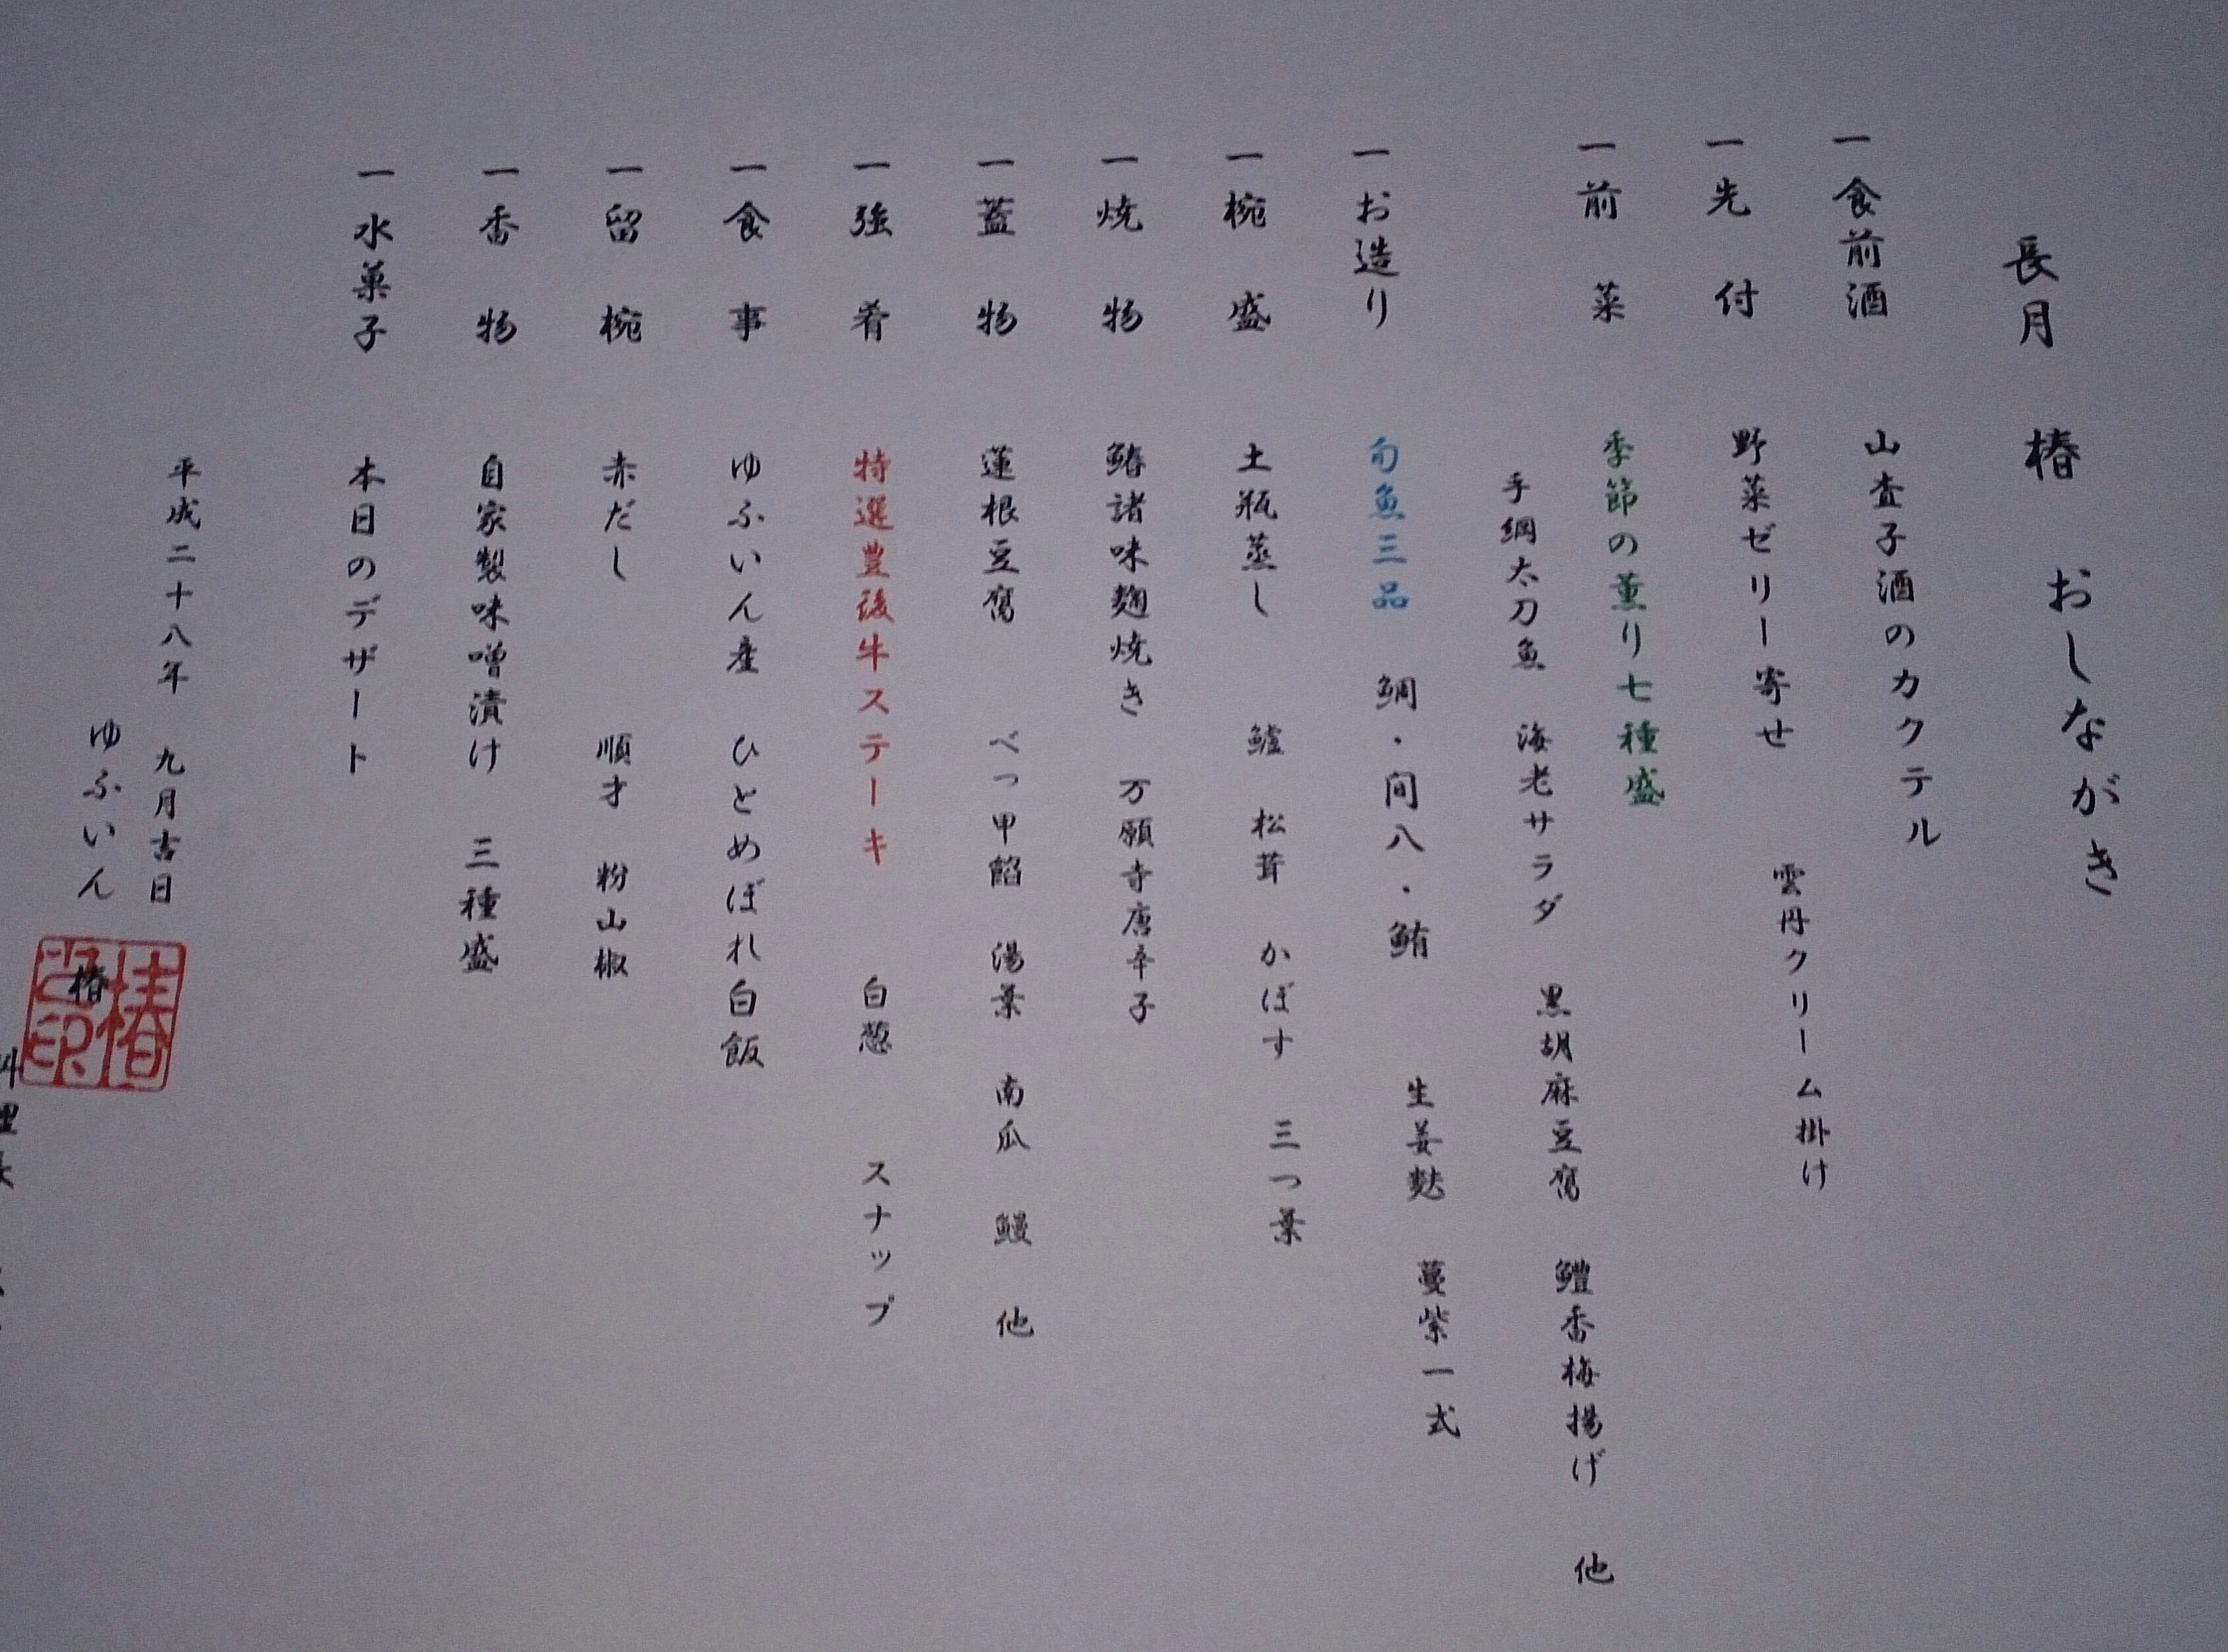 長月 椿 おしながき
一食前酒 山査子酒のカクテル
一先付 野菜ゼリー寄せ 雲丹クリーム掛け
一前菜 季節の薫り七種盛
手綱太刀魚 海老サラダ 黒胡麻豆腐 鱧香梅揚げ 他
一お造り 旬魚三品 鯛・間八・鮪 生姜麩 蔓紫一式
一椀盛 土瓶蒸し 鱧 松茸 かぼす 三つ葉
一焼物 鰆諸味麹焼き 万願寺唐辛子
一蓋物 蓮根豆腐 べっ甲餡 湯葉 南瓜 鰻 他
一強肴 特選豊後牛ステーキ 白葱 スナップ
一食事 ゆふいん産 ひとめぼれ白飯
一留椀 赤だし 順才 粉山椒
一香物 自家製味噌漬け 三種盛
一水菓子 本日のデザート
平成二十八年 九月吉日
ゆふいん 椿